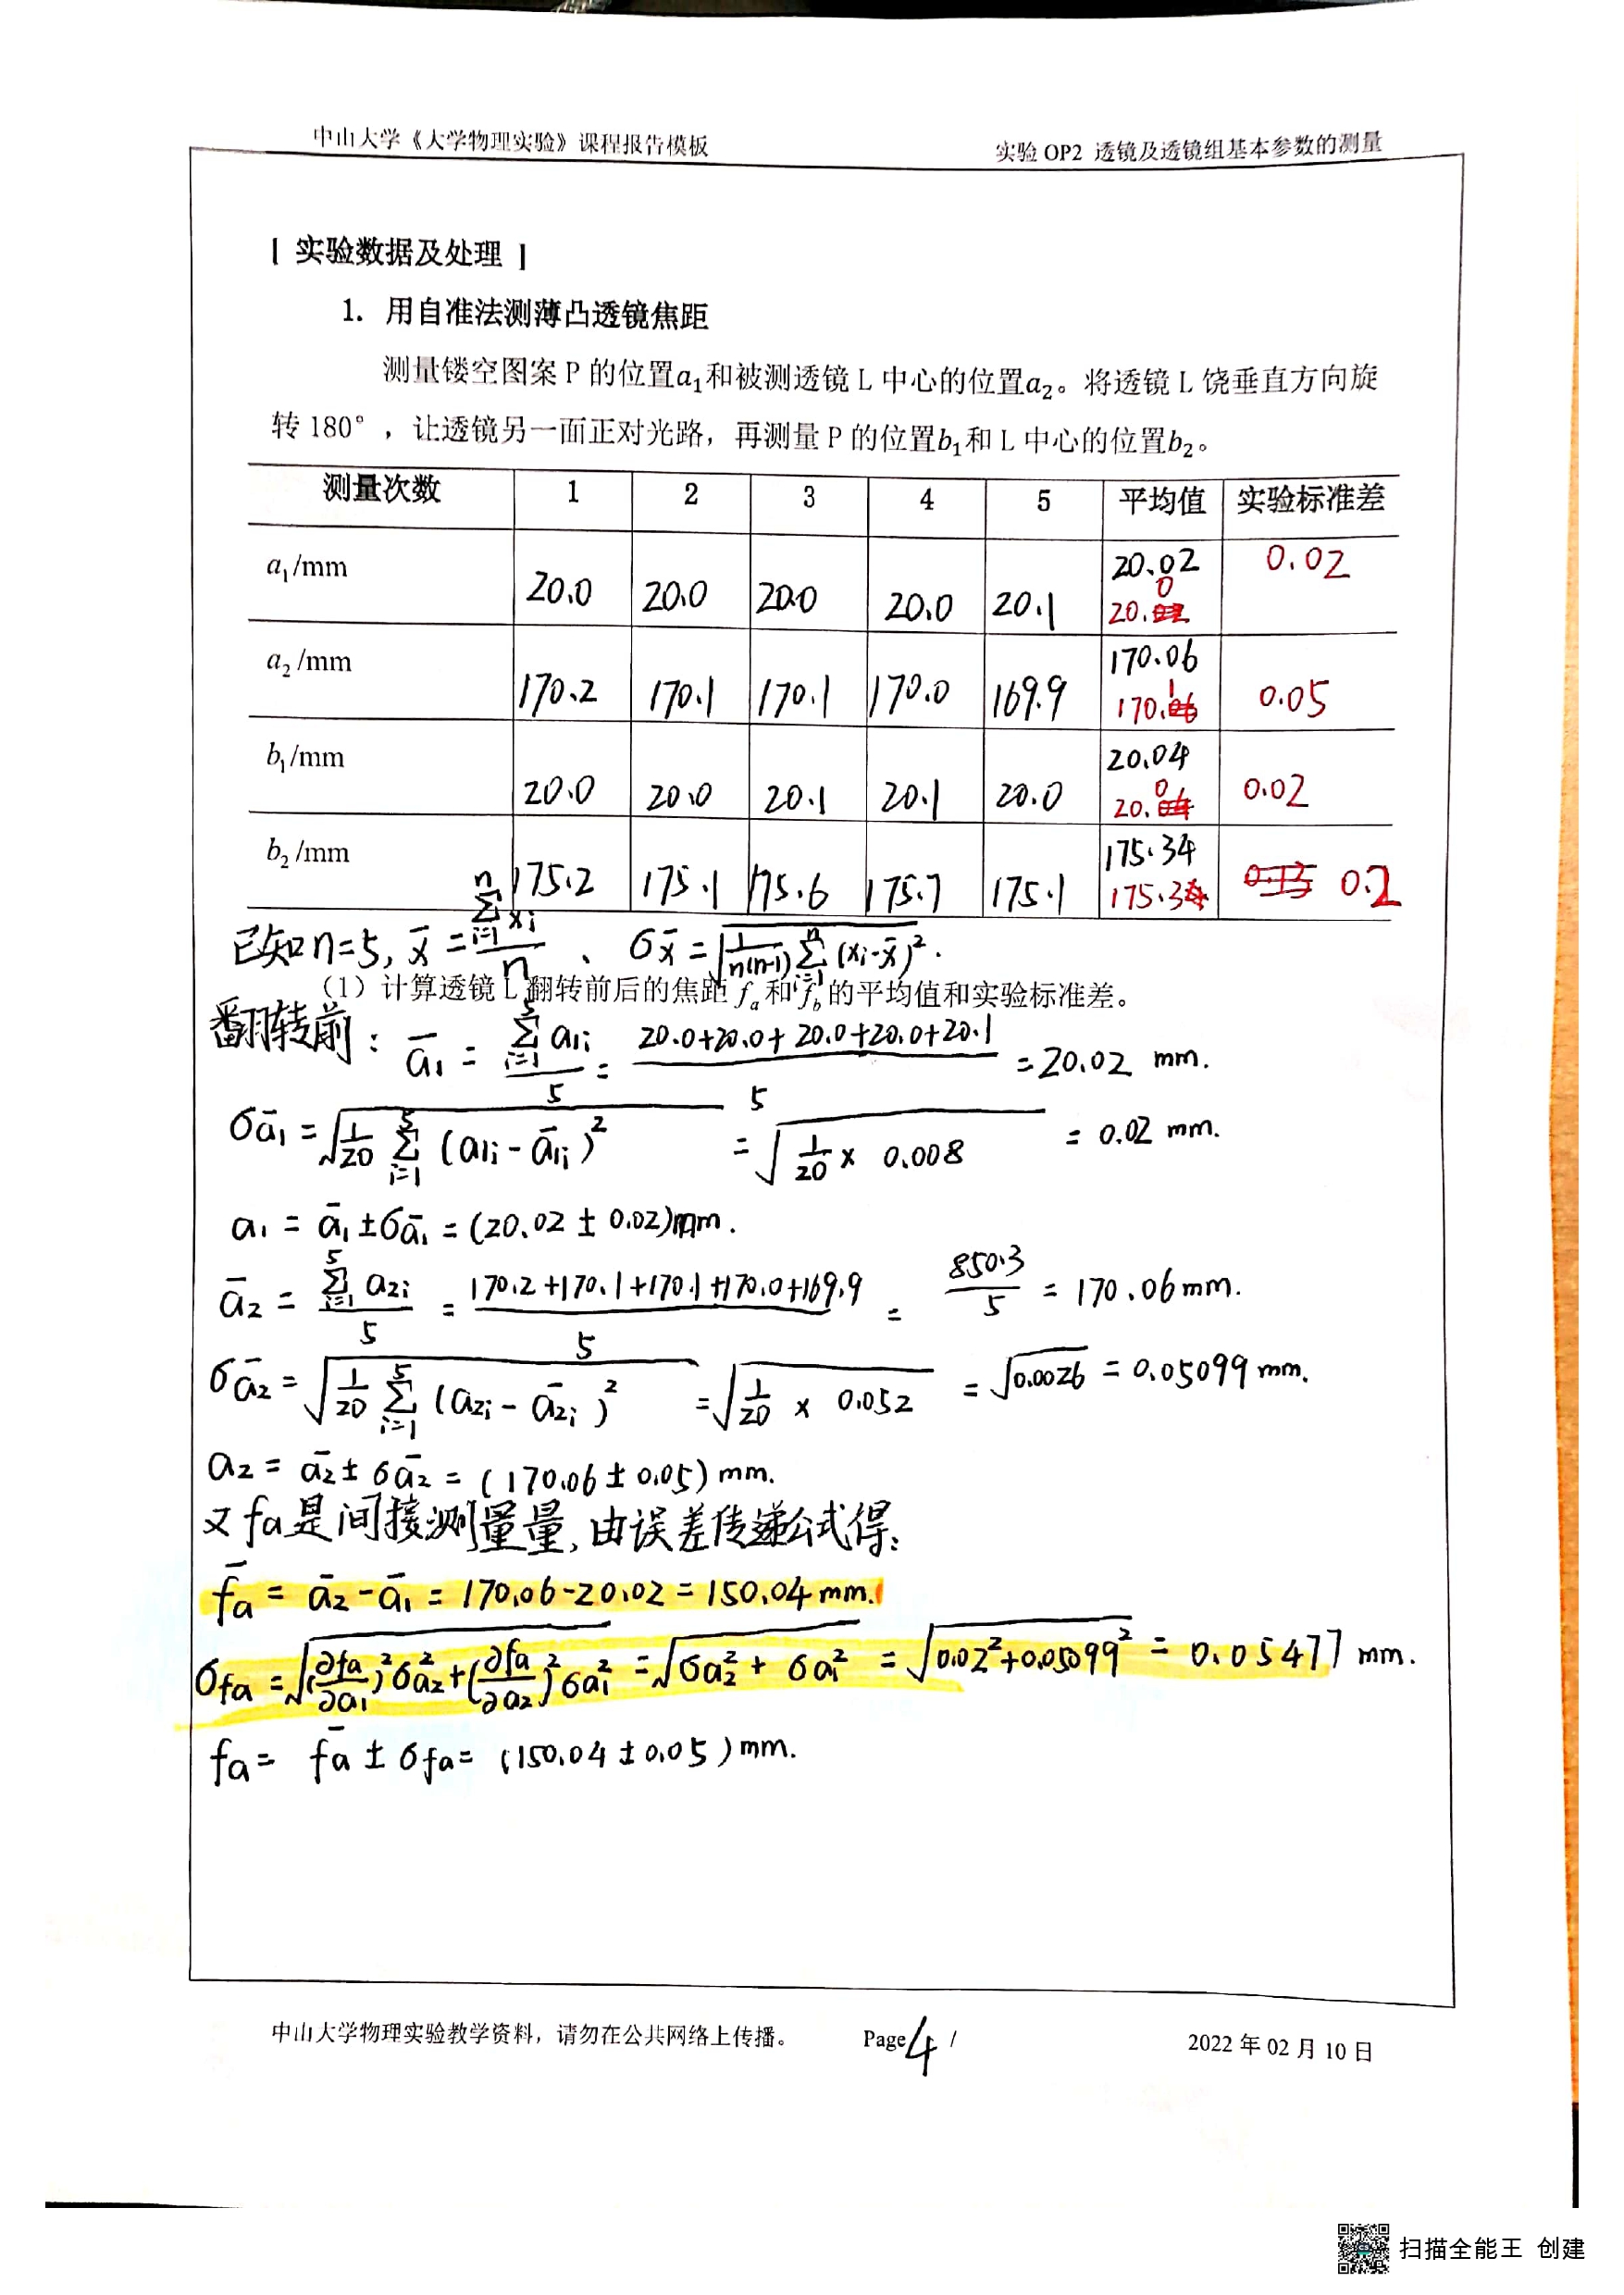 中山大学《大学物理实验》课程报告模板
实验 OP2 透镜及透镜组基本参数的测量
[ 实验数据及处理 ]
1. 用自准法测薄凸透镜焦距
测量镂空图案 P 的位置a₁和被测透镜 L 中心的位置a₂。将透镜 L 饶垂直方向旋
转 180°，让透镜另一面正对光路，再测量 P 的位置b₁和 L 中心的位置b₂。
测量次数 1 2 3 4 5 平均值 实验标准差
a₁/mm 20.0 20.0 20.0 20.0 20.1 20.02 20.0 0.02
a₂/mm 170.2 170.1 170.1 170.0 169.9 170.06 170.1 0.05
b₁/mm 20.0 20.0 20.1 20.1 20.0 20.04 20.0 0.02
b₂/mm 175.2 175.1 175.6 175.7 175.1 175.34 175.3 0.2
已知n=5, x̄ = Σⁿᵢ₌₁ xᵢ / n 、 σx̄ = √(1/n(n-1) Σⁿᵢ₌₁ (xᵢ-x̄)²).
（1）计算透镜 L 翻转前后的焦距 fₐ和 f_b 的平均值和实验标准差。
翻转前: ā₁ = Σ⁵ᵢ₌₁ a₁ᵢ / 5 = (20.0+20.0+20.0+20.0+20.1) / 5 = 20.02 mm.
σā₁ = √(1/20 Σ⁵ᵢ₌₁ (a₁ᵢ - ā₁ᵢ)²) = √(1/20 × 0.008) = 0.02 mm.
a₁ = ā₁ ± σā₁ = (20.02 ± 0.02)mm.
ā₂ = Σ⁵ᵢ₌₁ a₂ᵢ / 5 = (170.2+170.1+170.1+170.0+169.9) / 5 = 850.3 / 5 = 170.06mm.
σā₂ = √(1/20 Σ⁵ᵢ₌₁ (a₂ᵢ - ā₂ᵢ)²) = √(1/20 × 0.052) = √0.0026 = 0.05099 mm.
a₂ = ā₂ ± σā₂ = (170.06 ± 0.05) mm.
又fa是间接测量量,由误差传递公式得:
f̄a = ā₂ - ā₁ = 170.06-20.02 = 150.04 mm.
σfa = √((∂fa/∂a₁)²σa₂² + (∂fa/∂a₂)²σa₁²) = √(σa₂² + σa₁²) = √(0.02²+0.05099²) = 0.05477 mm.
fa = f̄a ± σfa = (150.04 ± 0.05) mm.
中山大学物理实验教学资料，请勿在公共网络上传播。
Page 4 /
2022 年 02 月 10 日
扫描全能王 创建